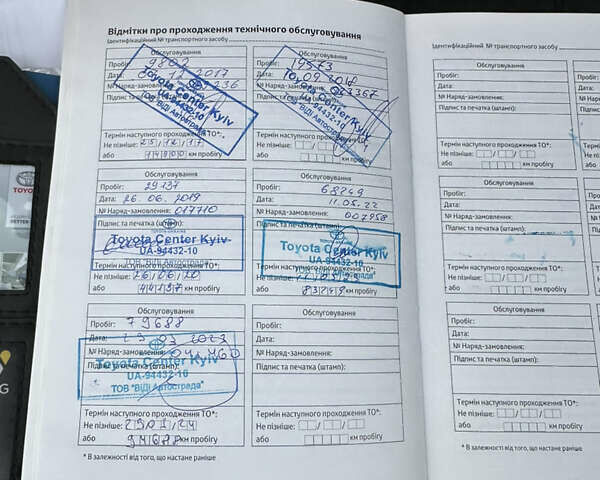 Відмітки про проходження технічного обслуговування
Ідентифікаційний № транспортного засобу
Обслуговування
Пробіг: 9802
Дата: 12 2017
№ Наряд-замовлення: 236
Підпис та печатка (штамп):
Toyota Center Kyiv
UA-94432-10
ТОВ "ВІДІ Автострада"
Термін наступного проходження ТО*:
Не пізніше: 25/12/17
або км пробігу
Обслуговування
Пробіг: 19573
Дата: 09 2018
№ Наряд-замовлення:
Підпис та печатка (штамп):
Toyota Center Kyiv
UA-94432-10
ТОВ "ВІДІ Автострада"
Термін наступного проходження ТО*:
Не пізніше:
або км пробігу
Обслуговування
Пробіг: 29137
Дата: 26.06.2019
№ Наряд-замовлення: 017710
Підпис та печатка (штамп):
Toyota Center Kyiv
UA-94432-10
ТОВ "ВІДІ Автострада"
Термін наступного проходження ТО*:
Не пізніше: 26/06/20
або 44137 км пробігу
Обслуговування
Пробіг: 68249
Дата: 11.05.22
№ Наряд-замовлення: 002958
Підпис та печатка (штамп):
Toyota Center Kyiv
UA-94432-10
ТОВ "ВІДІ Автострада"
Термін наступного проходження ТО*:
Не пізніше: 11/05/23
або 83249 км пробігу
Обслуговування
Пробіг: 79688
Дата: 29 03 2023
№ Наряд-замовлення:
Підпис та печатка (штамп):
Toyota Center Kyiv
UA-94432-10
ТОВ "ВІДІ Автострада"
Термін наступного проходження ТО*:
Не пізніше:
або 94688 км пробігу
Обслуговування
Пробіг:
Дата:
№ Наряд-замовлення:
Підпис та печатка (штамп):
Термін наступного проходження ТО*:
Не пізніше:
або км пробігу
* В залежності від того, що настане раніше
Ідентифікаційний № транспортного засобу
Обслуговування
Пробіг:
Дата:
№ Наряд-замовлення:
Підпис та печатка (штамп):
Термін наступного проходження ТО*:
Не пізніше:
або км пробігу
Обслуговування
Пробіг:
Дата:
№ Наряд-замовлення:
Підпис та печатка (штамп):
Термін наступного проходження ТО*:
Не пізніше:
або км пробігу
Обслуговування
Пробіг:
Дата:
№ Наряд-замовлення:
Підпис та печатка (штамп):
Термін наступного проходження ТО*:
Не пізніше:
або км пробігу
* В залежності від того, що настане раніше
TOYOTA